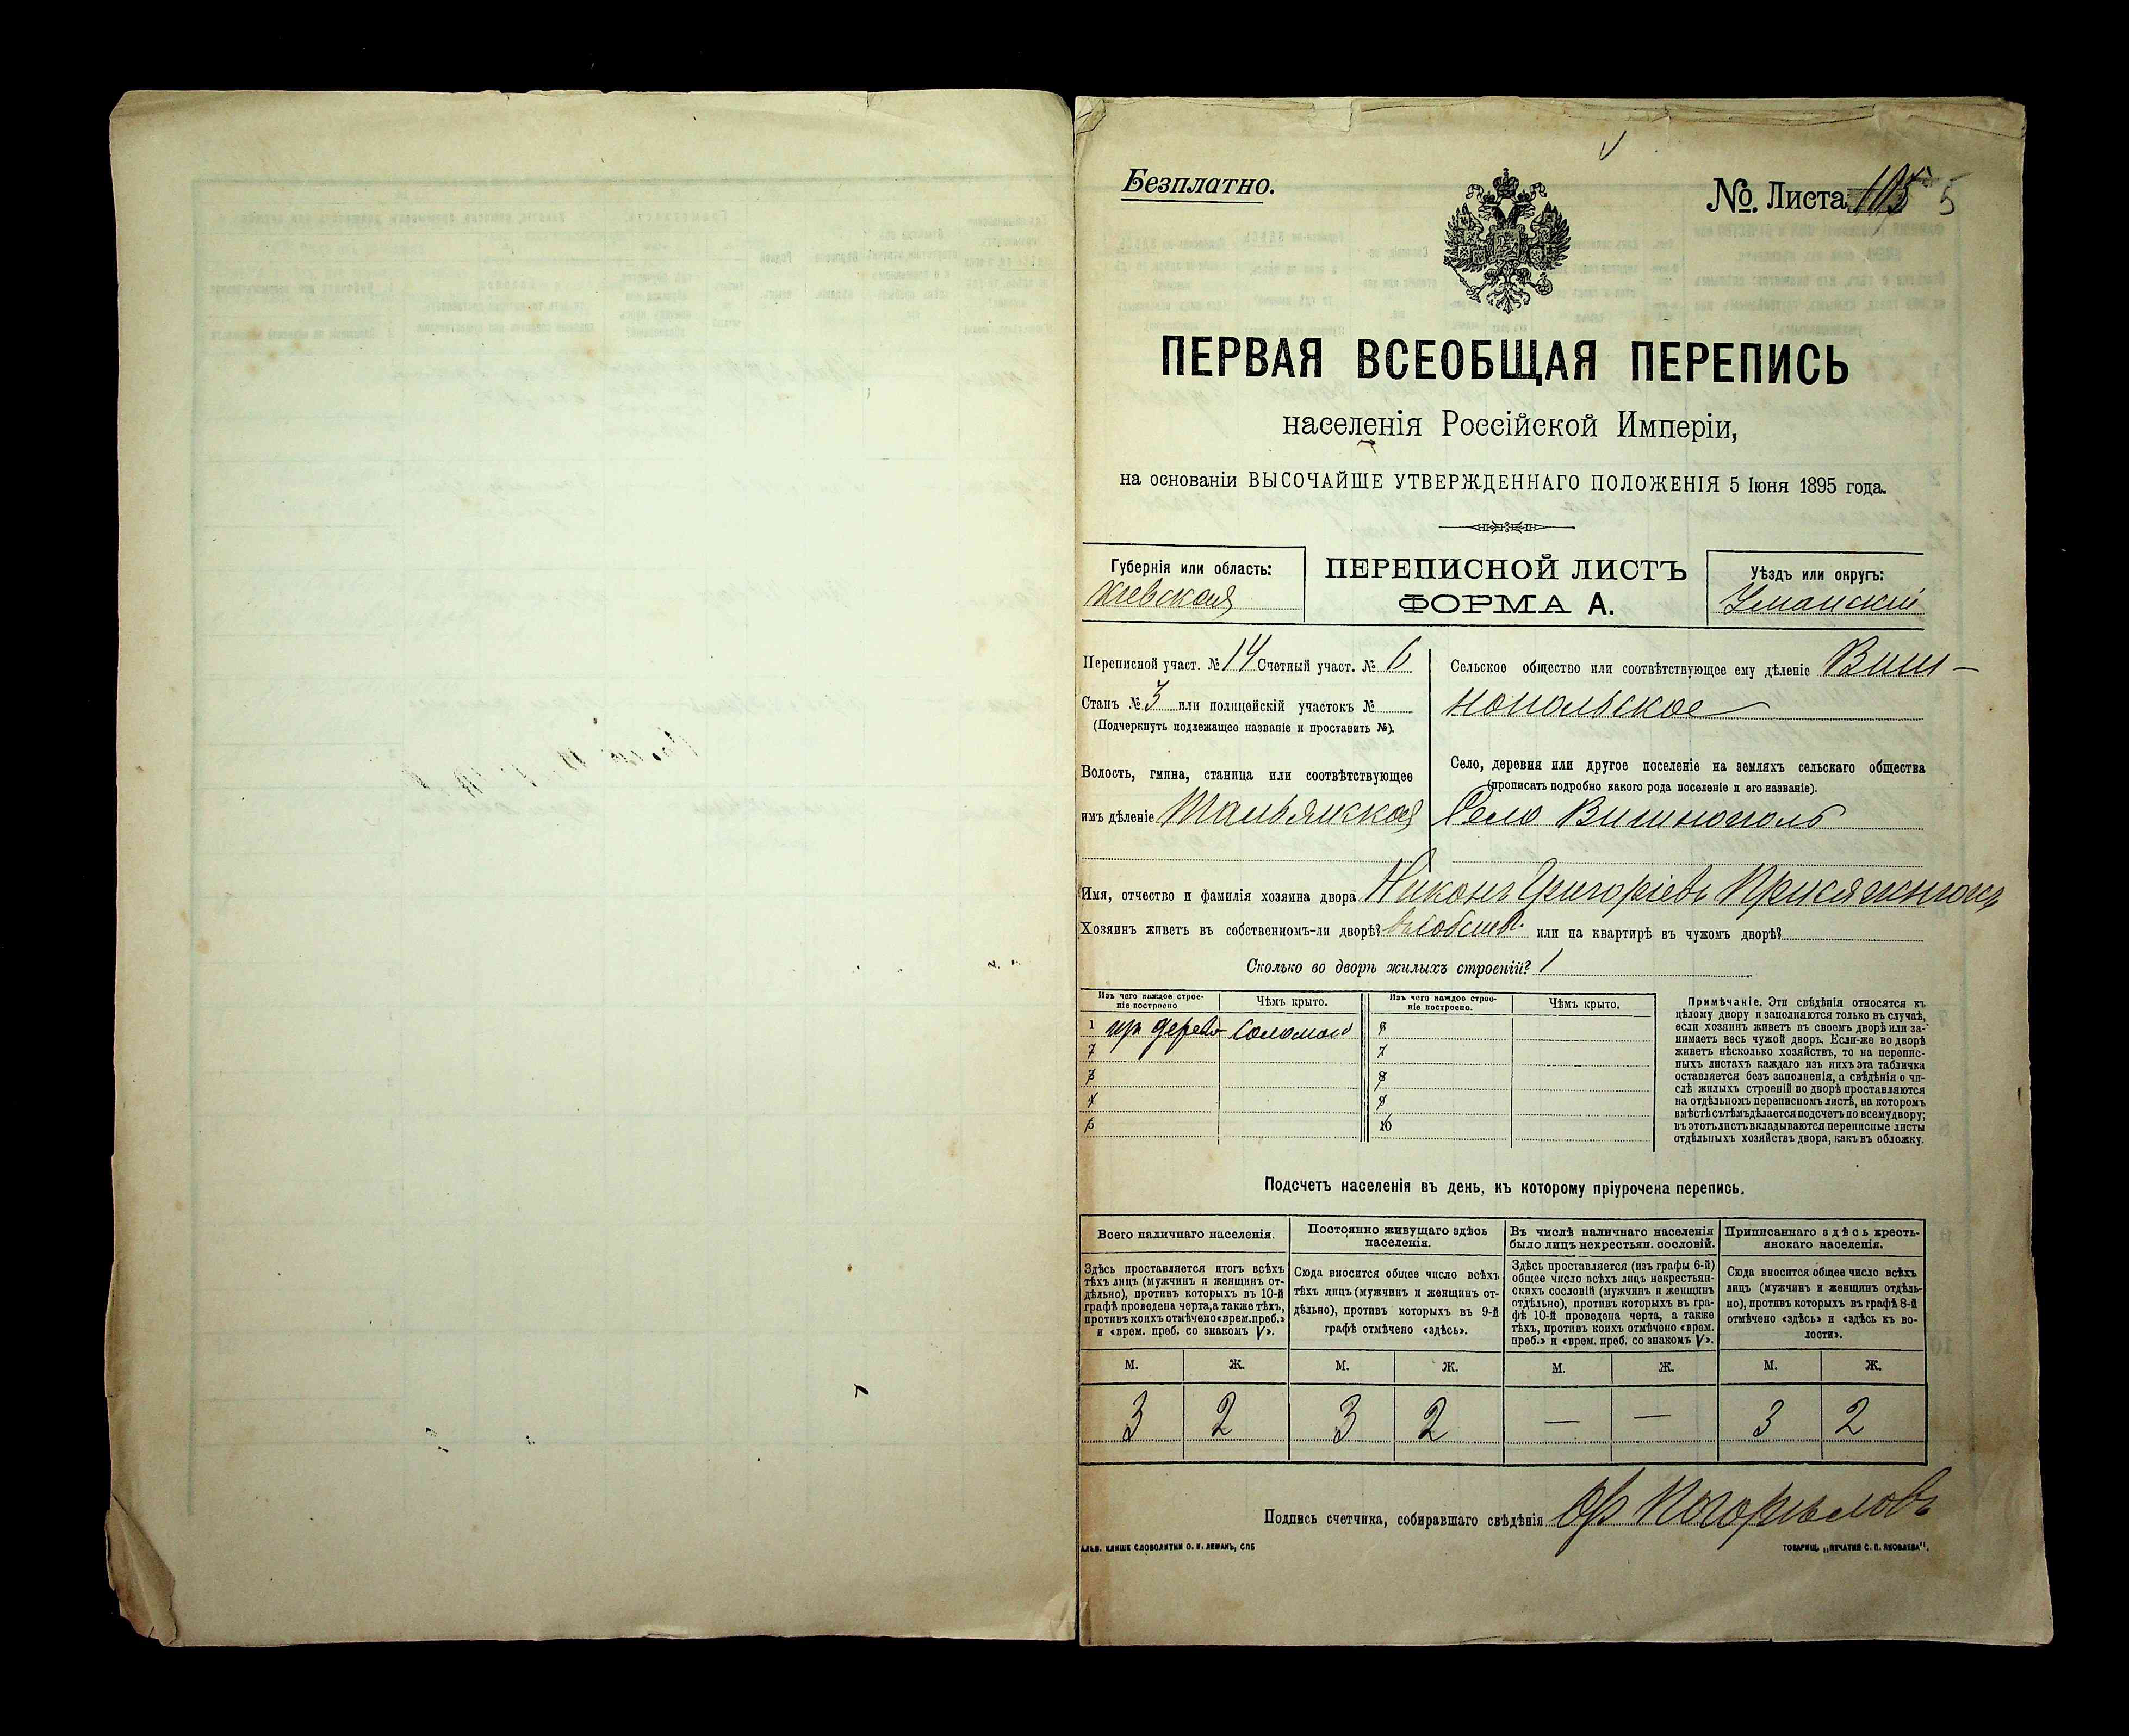 Безплатно.
№ Листа 105 5
ПЕРВАЯ ВСЕОБЩАЯ ПЕРЕПИСЬ
населенія Россійской Имперіи,
на основаніи ВЫСОЧАЙШЕ УТВЕРЖДЕННАГО ПОЛОЖЕНІЯ 5 Іюня 1895 года.
Губернія или область:
Кіевская
ПЕРЕПИСНОЙ ЛИСТЪ
ФОРМА А.
Уѣздъ или округъ:
Уманскій
Переписной участ. № 14 Счетный участ. № 6
Станъ № 3 или полицейскій участокъ №
(Подчеркнуть подлежащее названіе и проставить №).
Волость, гмина, станица или соотвѣтствующее
имъ дѣленіе Тальянская
Сельское общество или соотвѣтствующее ему дѣленіе Виш-
нопольское
Село, деревня или другое поселеніе на земляхъ сельскаго общества
(прописать подробно какого рода поселеніе и его названіе).
Село Вишнополь
Имя, отчество и фамилія хозяина двора Никонъ Григоріевъ Присяжнюкъ
Хозяинъ живетъ въ собственномъ-ли дворѣ? въ собств. или на квартирѣ въ чужомъ дворѣ?
Сколько во дворѣ жилыхъ строеній? 1
Изъ чего каждое строе-
ніе построено
Чѣмъ крыто.
Изъ чего каждое строе-
ніе построено.
Чѣмъ крыто.
1 изъ дерева соломою
Примѣчаніе. Эти свѣдѣнія относятся къ
цѣлому двору и заполняются только въ случаѣ,
если хозяинъ живетъ въ своемъ дворѣ или за-
нимаетъ весь чужой дворъ. Если-же во дворѣ
живетъ нѣсколько хозяйствъ, то на перепис-
ныхъ листахъ каждаго изъ нихъ эта табличка
оставляется безъ заполненія, а свѣдѣнія о чи-
слѣ жилыхъ строеній во дворѣ проставляются
на отдѣльномъ переписномъ листѣ, на которомъ
вмѣстѣ съ тѣмъ дѣлается подсчетъ по всему двору;
въ этотъ листъ вкладываются переписные листы
отдѣльныхъ хозяйствъ двора, какъ въ обложку.
Подсчетъ населенія въ день, къ которому пріурочена перепись.
Всего наличнаго населенія.
Здѣсь проставляется итогъ всѣхъ
тѣхъ лицъ (мужчинъ и женщинъ от-
дѣльно), противъ которыхъ въ 10-й
графѣ проведена черта, а также тѣхъ,
противъ коихъ отмѣчено «врем. преб.»
и «врем. преб. со знакомъ V».
Постоянно живущаго здѣсь
населенія.
Сюда вносится общее число всѣхъ
тѣхъ лицъ (мужчинъ и женщинъ от-
дѣльно), противъ которыхъ въ 9-й
графѣ отмѣчено «здѣсь».
Въ числѣ наличнаго населенія
было лицъ некрестьян. сословій.
Здѣсь проставляется (изъ графы 6-й)
общее число всѣхъ лицъ некрестьян-
скихъ сословій (мужчинъ и женщинъ
отдѣльно), противъ которыхъ въ гра-
фѣ 10-й проведена черта, а также
тѣхъ, противъ коихъ отмѣчено «врем.
преб.» и «врем. преб. со знакомъ V».
Приписаннаго здѣсь кресть-
янскаго населенія.
Сюда вносится общее число всѣхъ
лицъ (мужчинъ и женщинъ отдѣль-
но), противъ которыхъ въ графѣ 8-й
отмѣчено «здѣсь» и «здѣсь къ во-
лости».
М. Ж. М. Ж. М. Ж. М. Ж.
3 2 3 2 — — 3 2
Подпись счетчика, собиравшаго свѣдѣнія Погорѣловъ
АЛЬВ. КЛИШЕ СЛОВОЛИТНИ О. И. ЛЕМАНЪ, СПБ
ТОВАРИЩ. „ПЕЧАТНЯ С. П. ЯКОВЛЕВА".